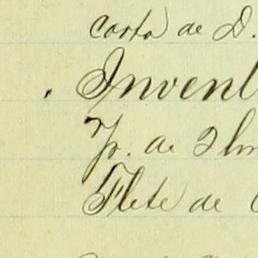 carta de D.
Invent
Yp. de Ilm
Flete de